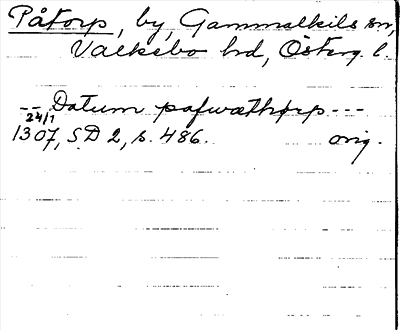 Påtorp, by, Gammalkils sn,
Valkebo hd, Österg. l.
-- Datum pafwæthorp ---
24/1
1307, SD 2, s. 486. orig.